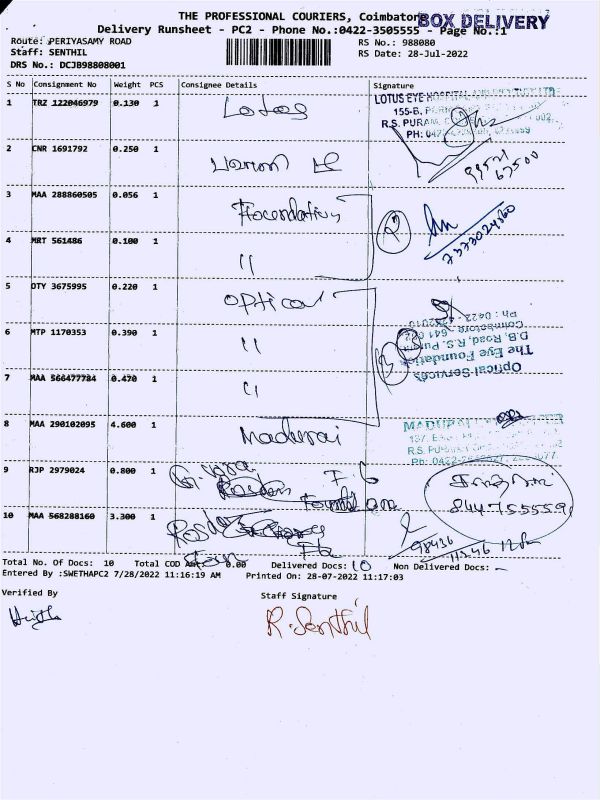 THE PROFESSIONAL COURIERS, Coimbatore
BOX DELIVERY
Delivery Runsheet - PC2 - Phone No.:0422-3505555 - Page No.:1
Route: PERIYASAMY ROAD
RS No.: 988080
Staff: SENTHIL
RS Date: 28-Jul-2022
DRS No.: DCJB98808001
S No Consignment No Weight PCS Consignee Details Signature
1 TRZ 122046979 0.130 1 Lotus
LOTUS EYE HOSPITAL
155-B, 
R.S. PURAM,
2 CNR 1691792 0.250 1
99521
67500
3 MAA 288860505 0.056 1 Foundation
4 MRT 561486 0.100 1 "
7333024360
5 OTY 3675995 0.220 1 Optical
6 MTP 1170353 0.390 1 "
Optical Services
The Eye Foundation
D.B. Road, R.S. Puram
Coimbatore - 641 002
Ph : 0422 -
7 MAA 566477784 0.470 1 "
8 MAA 290102095 4.600 1 Madurai
MADURAI
R.S. PURAM
9 RJP 2979024 0.800 1
8447555591
10 MAA 568288160 3.300 1
98436
11546
Total No. Of Docs: 10 Total COD Amt: 0.00 Delivered Docs: 10 Non Delivered Docs: -
Entered By :SWETHAPC2 7/28/2022 11:16:19 AM Printed On: 28-07-2022 11:17:03
Verified By
Staff Signature
R. Senthil